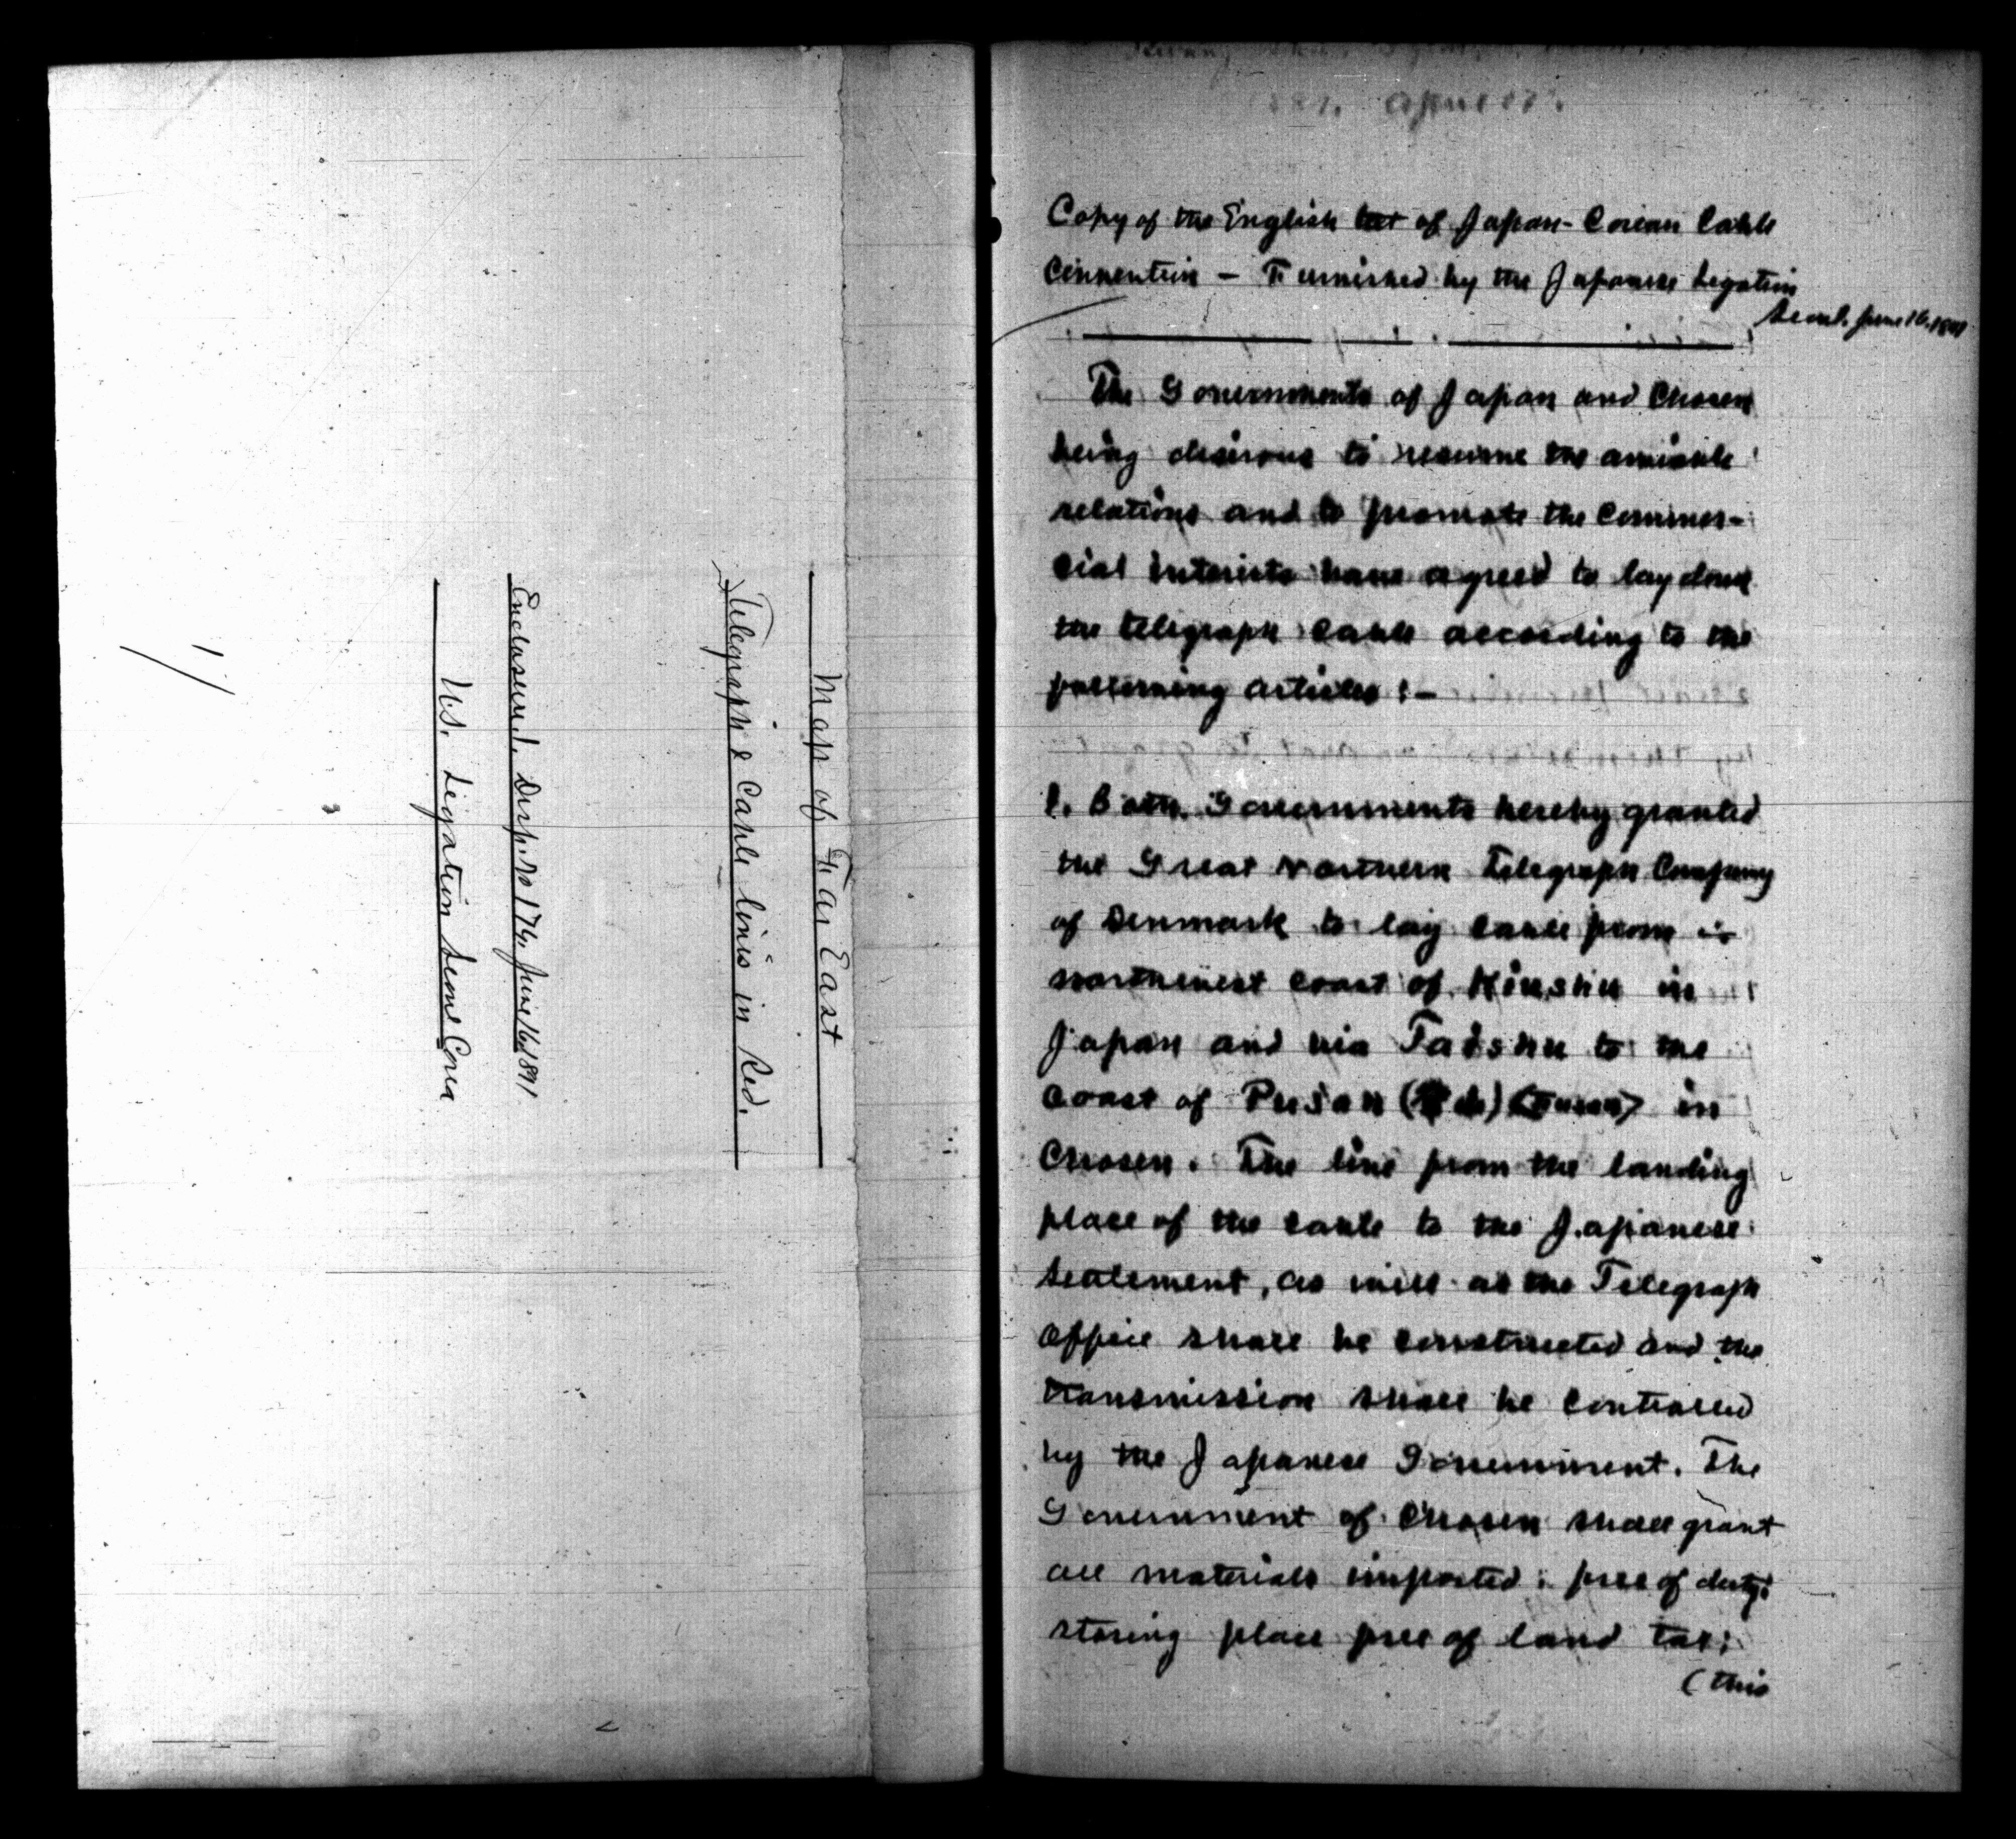 Map of Far East
Telegraph & Cable lines in Red.
Enclosure 1. Disp. No 176. June 16 1891
U.S. Legation Seoul Corea
Copy of the English text of Japan-Corean Cable
Convention - Furnished by the Japanese Legation
Seoul. June 16, 1891
The Governments of Japan and Chosen
being desirous to resume the amicable
relations and to promote the Commer-
cial interests have agreed to lay down
the telegraph cable according to the
following articles:-
1. Both Governments hereby granted
the Great Northern Telegraph Company
of Denmark to lay cable from
northwest coast of Kiushu in
Japan and via Tsushu to the
Coast of Pusan in
Chosen. The line from the landing
place of the cable to the Japanese
Settlement, as well as the Telegraph
Office shall be constructed and the
transmission shall be controlled
by the Japanese Government. The
Government of Chosen shall grant
all materials imported: free of duty:
storing place free of land tax:
(this